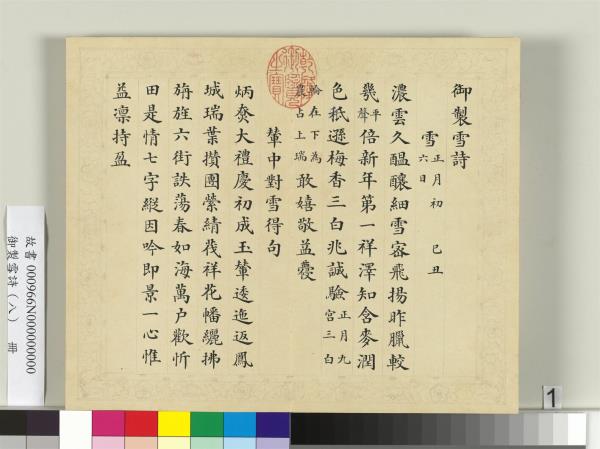 御製雪詩
雪 正月初六日 己丑
濃雲久醖釀細雪密飛揚昨臘較
幾平聲倍新年第一祥澤知含麥潤
色秪遜梅香三白兆誠驗正月九宮三白
輪在下為農占上瑞敢嬉敬益㐮
輦中對雪得句
炳爕大禮慶初成玉輦逶迤返鳳
城瑞葉攢團縈綪茷祥花幡纚拂
旃旌六街詄蕩春如海萬戶歡忻
田是情七字縱因吟即景一心惟
益凛持盈
故書000966N000000000
御製雪詩(八) 冊
1